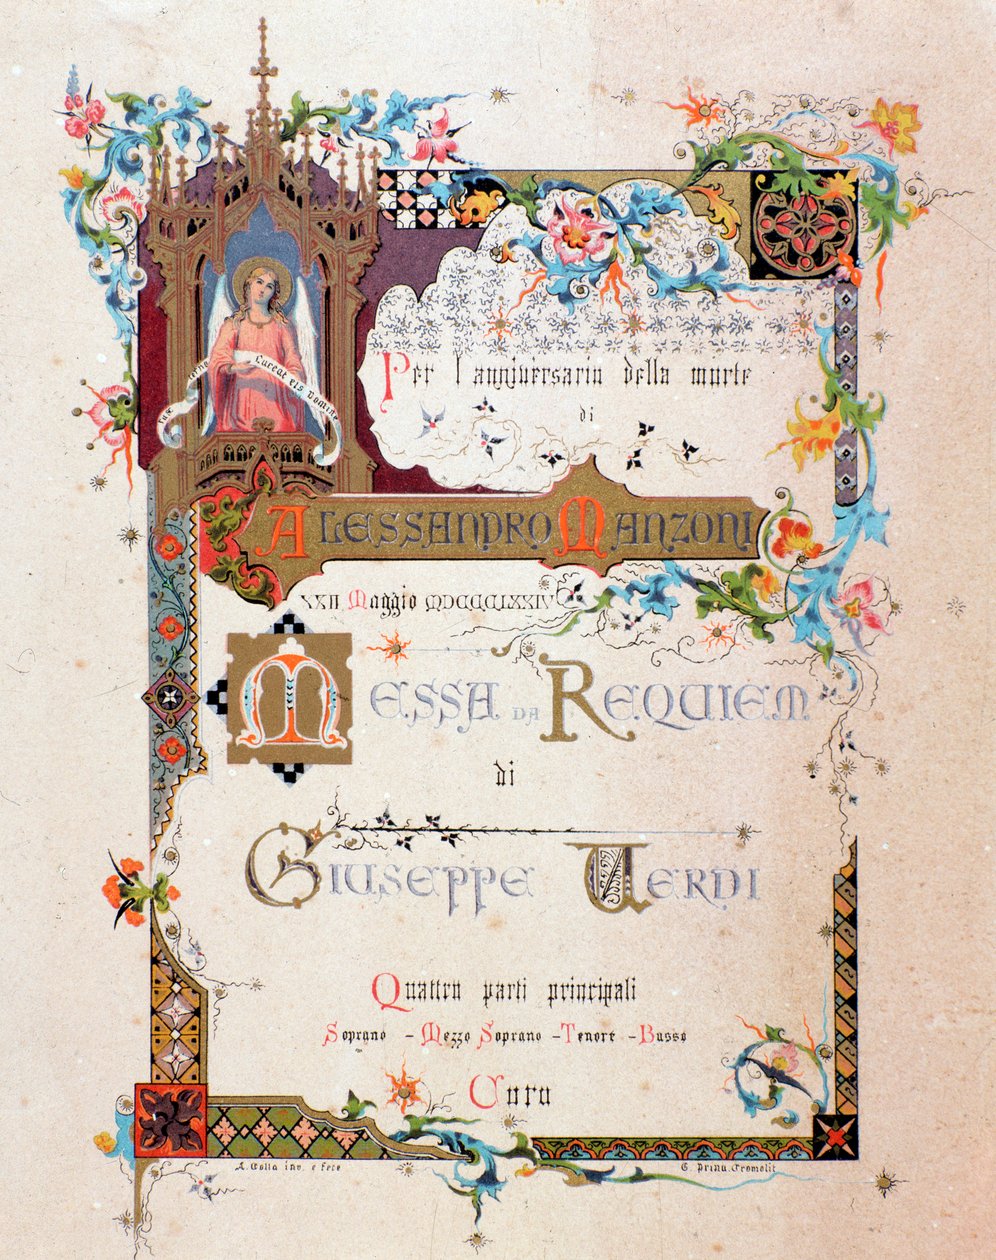 Lux eterna luceat eis Domine
Per l'anniversario della morte
di
ALESSANDRO MANZONI
XXII Maggio MDCCCLXXIV
MESSA DA REQUIEM
di
GIUSEPPE VERDI
Quattro parti principali
Soprano - Mezzo Soprano - Tenore - Basso
Coro
A. Colla inv. e fece
C. Prinu. Cromolit